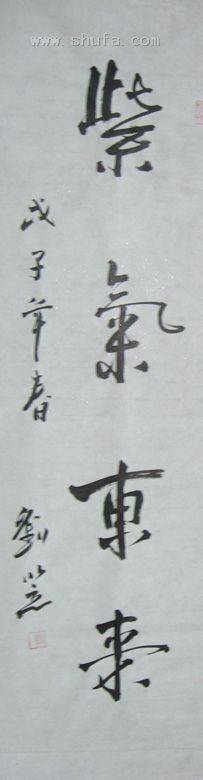 www.shufa.com
紫氣東来
戊子年春
劉